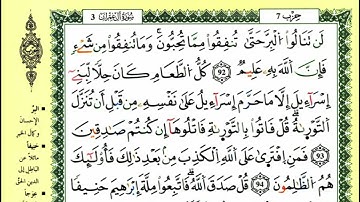 حِزْب 7
سُورَةُ آلِ عِمْرَان 3
لَن تَنَالُوا۟ الْبِرَّ حَتَّىٰ تُنفِقُوا۟ مِمَّا تُحِبُّونَ وَمَا تُنفِقُوا۟ مِن شَىْءٍ
فَإِنَّ اللَّهَ بِهِ عَلِيمٌ 92 كُلُّ الطَّعَامِ كَانَ حِلًّا لِّبَنِى
إِسْرَآءِيلَ إِلَّا مَا حَرَّمَ إِسْرَآءِيلُ عَلَىٰ نَفْسِهِ مِن قَبْلِ أَن تُنَزَّلَ
التَّوْرَىٰةُ قُلْ فَاتُوا۟ بِالتَّوْرَىٰةِ فَاتْلُوهَا إِن كُنتُمْ صَٰدِقِينَ
93 فَمَنِ افْتَرَىٰ عَلَى اللَّهِ الْكَذِبَ مِنۢ بَعْدِ ذَٰلِكَ فَأُو۟لَٰٓئِكَ
هُمُ الظَّٰلِمُونَ 94 قُلْ صَدَقَ اللَّهُ فَاتَّبِعُوا۟ مِلَّةَ إِبْرَٰهِيمَ حَنِيفًا
البرّ
الإحسان
وكمال الخير
حنيفا
مائلا عن
الباطل إلى
الدين الحق
عوجا